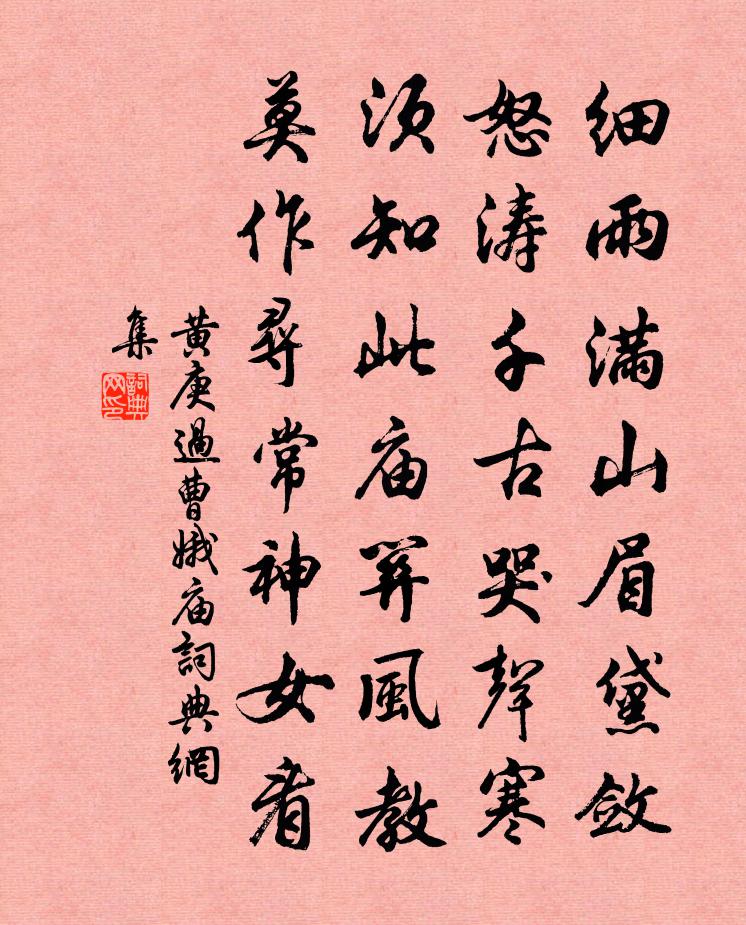 细雨满山眉黛敛
怒涛千古哭聲寒
须知此庙関風教
莫作尋常神女看
黄庚過曹娥庙詞典網
集
詞典
网印